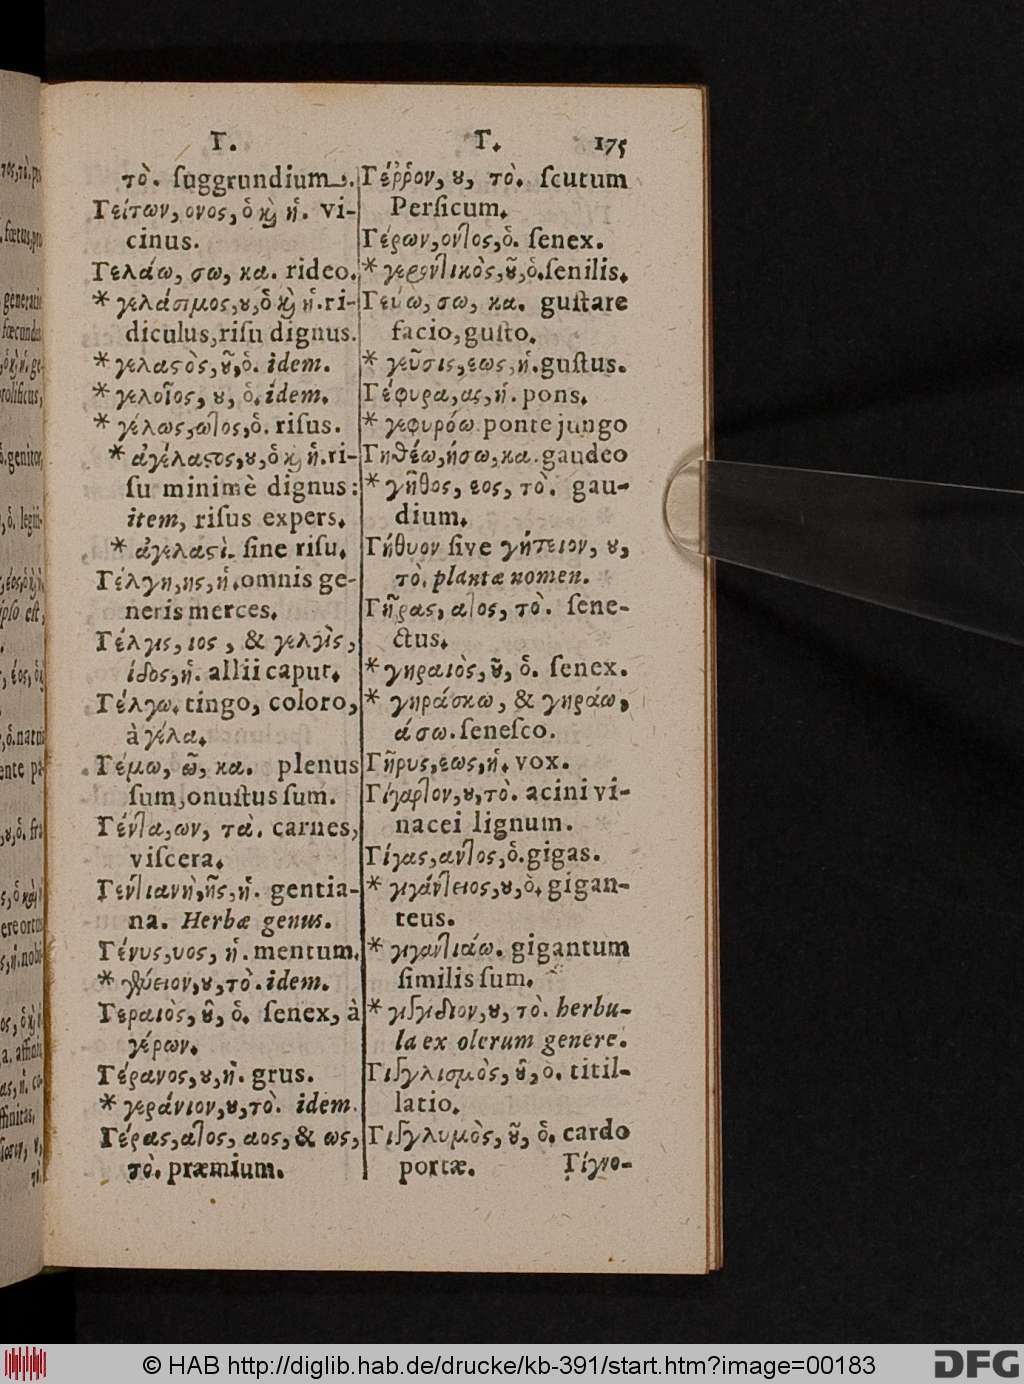 Γ.
τὸ. ſuggrundium.
Γείτων, ονος, ὁ ϗ ἡ. vi-
cinus.
Γελάω, σω, κα. rideo.
* γελάσιμος, ȣ, ὁ ϗ ἡ. ri-
diculus, riſu dignus.
* γελαϛὸς, ȣ͂, ὁ. idem.
* γελοῖος, ȣ, ὁ. idem.
* γέλως, ωτος, ὁ. riſus.
* ἀγέλαϛος, ȣ, ὁ ϗ ἡ. ri-
ſu minimè dignus:
item, riſus expers.
* ἀγελαϛὶ. ſine riſu.
Γέλγη, ης, ἡ. omnis ge-
neris merces.
Γέλγις, ιος, & γελγὶς,
ίδος, ἡ. allii caput.
Γέλγω. tingo, coloro,
à γέλα.
Γέμω, ῶ, κα. plenus
ſum, onuſtus ſum.
Γέντα, ων, τα. carnes,
viſcera.
Γεντιανὴ, ῆς, ἡ. gentia-
na. Herbæ genus.
Γένυς, υος, ἡ. mentum.
* γενύειον, ȣ, τὸ. idem.
Γεραιὸς, ȣ͂, ὁ. ſenex, à
γέρων.
Γέρανος, ȣ, ἡ. grus.
* γεράνιον, ȣ, τὸ. idem.
Γέρας, ατος, αος, & ως,
τὸ. præmium.
Γ.
175
Γέῤῥον, ȣ, τὸ. ſcutum
Perſicum.
Γέρων, οντος, ὁ. ſenex.
* γεροντικὸς, ȣ͂, ὁ. ſenilis.
Γεύω, σω, κα. guſtare
facio, guſto.
* γεῦσις, εως, ἡ. guſtus.
Γέφυρα, ας, ἡ. pons.
* γεφυρόω. ponte jungo
Γηθέω, ήσω, κα. gaudeo
* γῆθος, εος, τὸ. gau-
dium.
Γήθυον ſive γήτειον, ȣ,
τὸ. plantæ nomen.
Γῆρας, ατος, τὸ. ſene-
ctus.
* γηραιὸς, ȣ͂, ὁ. ſenex.
* γηράσκω, & γηράω,
άσω. ſeneſco.
Γῆρυς, εως, ἡ. vox.
Γίγαρτον, ȣ, τὸ. acini vi-
nacei lignum.
Γίγας, αντος, ὁ. gigas.
* γιγάντειος, ȣ, ὁ. gigan-
teus.
* γιγαντιάω. gigantum
ſimilis ſum.
* γιγγίδιον, ȣ, τὸ. herbu-
la ex olerum genere.
Γιγγλισμὸς, ȣ͂, ὁ. titil-
latio.
Γιγγλυμὸς, ȣ͂, ὁ. cardo
portæ.
Γίγνο-
© HAB http://diglib.hab.de/drucke/kb-391/start.htm?image=00183
DFG